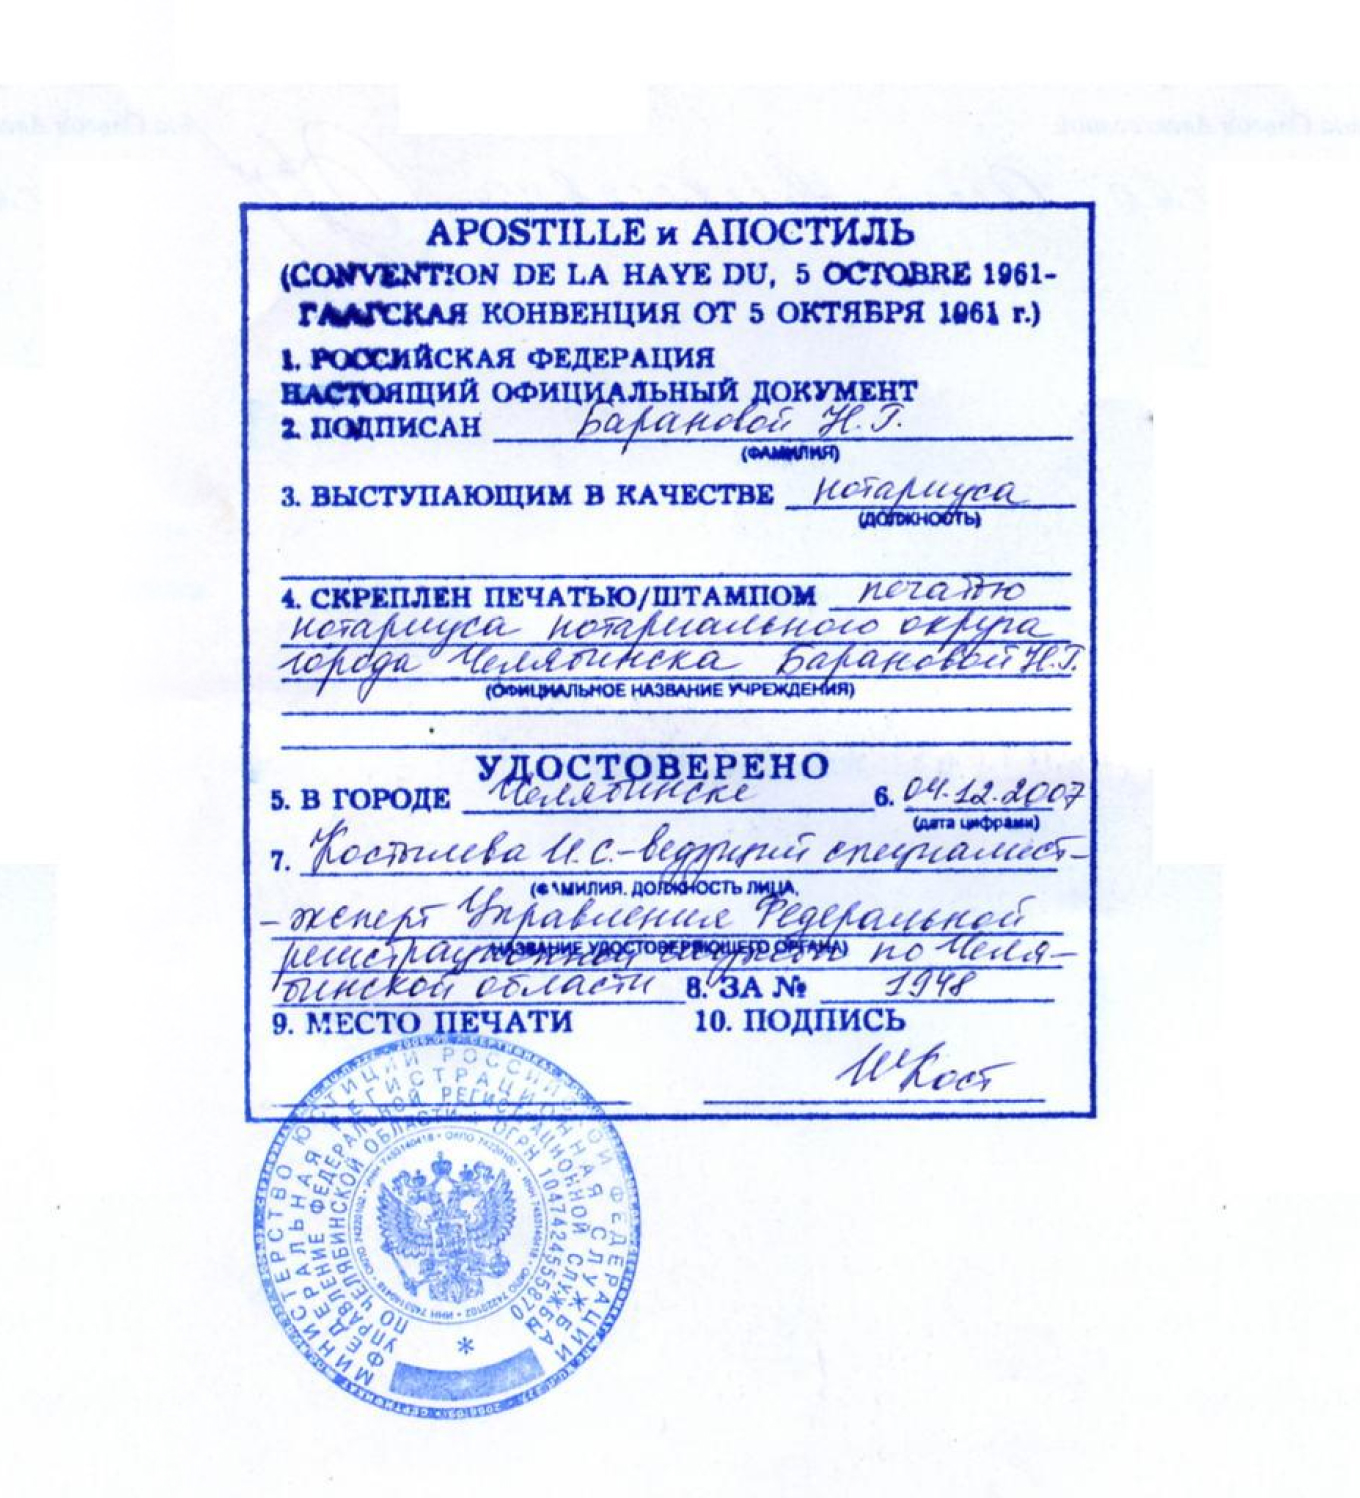 APOSTILLE и АПОСТИЛЬ
(CONVENTION DE LA HAYE DU, 5 OCTOBRE 1961-
ГААГСКАЯ КОНВЕНЦИЯ ОТ 5 ОКТЯБРЯ 1961 г.)
1. РОССИЙСКАЯ ФЕДЕРАЦИЯ
НАСТОЯЩИЙ ОФИЦИАЛЬНЫЙ ДОКУМЕНТ
2. ПОДПИСАН Барановой Н.Г.
(ФАМИЛИЯ)
3. ВЫСТУПАЮЩИМ В КАЧЕСТВЕ нотариуса
(ДОЛЖНОСТЬ)
4. СКРЕПЛЕН ПЕЧАТЬЮ/ШТАМПОМ печатью
нотариуса нотариального округа
города Челябинска Барановой Н.Г.
(ОФИЦИАЛЬНОЕ НАЗВАНИЕ УЧРЕЖДЕНИЯ)
УДОСТОВЕРЕНО
5. В ГОРОДЕ Челябинске 6. 04.12.2007
(дата цифрами)
7. Костылева И.С.-ведущий специалист-
(ФАМИЛИЯ, ДОЛЖНОСТЬ ЛИЦА,
-эксперт Управления Федеральной
НАЗВАНИЕ УДОСТОВЕРЯЮЩЕГО ОРГАНА)
регистрационной службы по Челя-
бинской области 8. ЗА № 1948
9. МЕСТО ПЕЧАТИ 10. ПОДПИСЬ
ИКост
МИНИСТЕРСТВО ЮСТИЦИИ РОССИЙСКОЙ ФЕДЕРАЦИИ
ФЕДЕРАЛЬНАЯ РЕГИСТРАЦИОННАЯ СЛУЖБА
УПРАВЛЕНИЕ ФЕДЕРАЛЬНОЙ РЕГИСТРАЦИОННОЙ СЛУЖБЫ
ПО ЧЕЛЯБИНСКОЙ ОБЛАСТИ * ОГРН 1047424555870